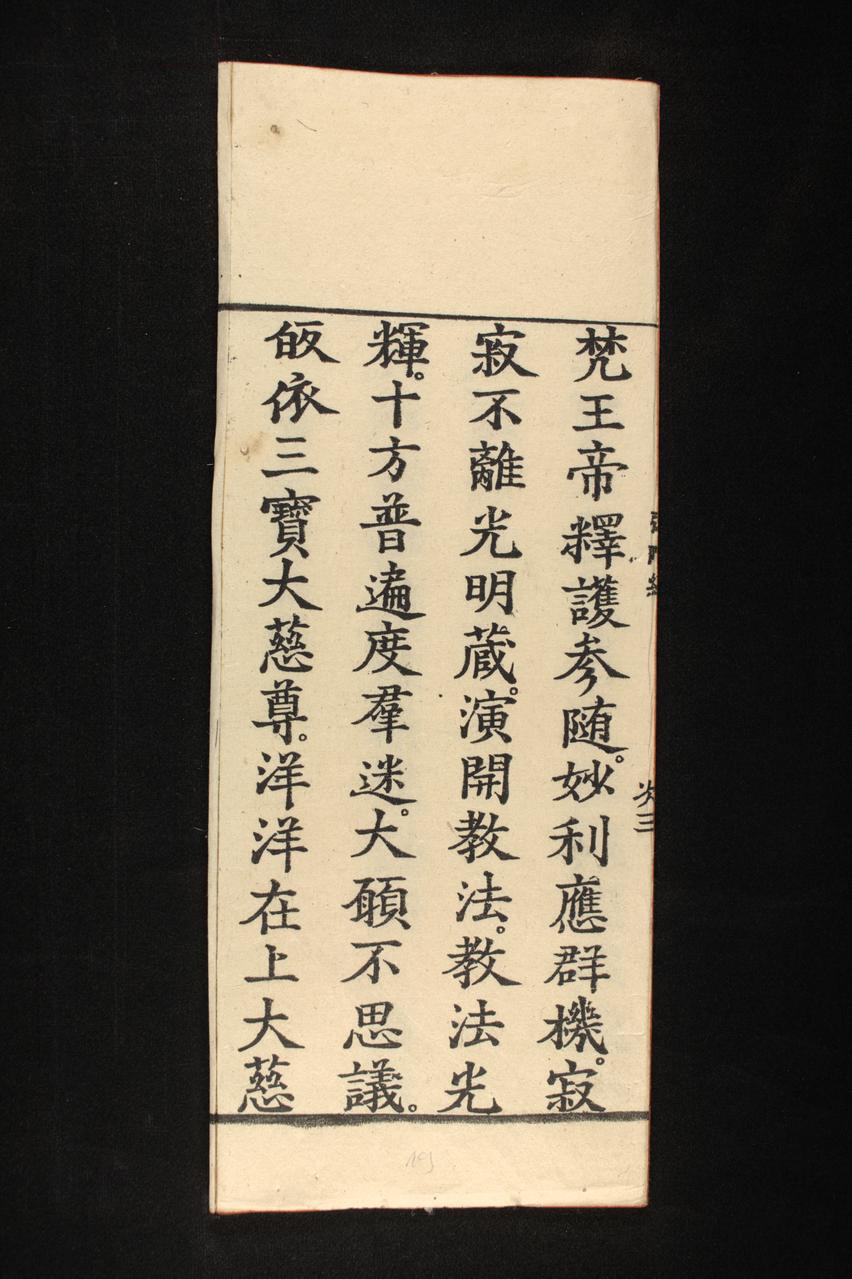 梵王帝釋護参随。妙利應群機。寂
寂不離光明蔵。演開教法。教法光
輝。十方普遍度羣迷。大願不思議。
皈依三寶大慈尊。洋洋在上大慈